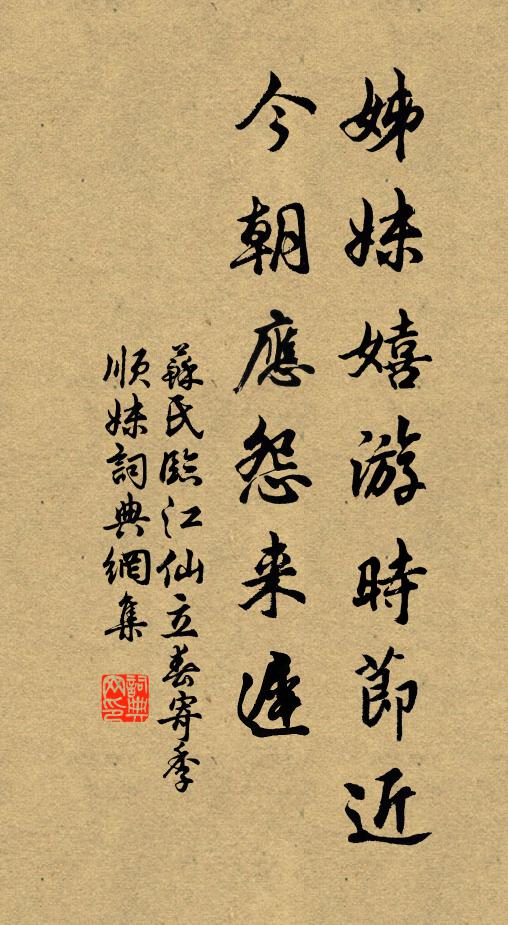 姊妹嬉游時節近
今朝應怨来遲
蘇氏臨江仙立春寄季
順妹詞典網集
詞典網印